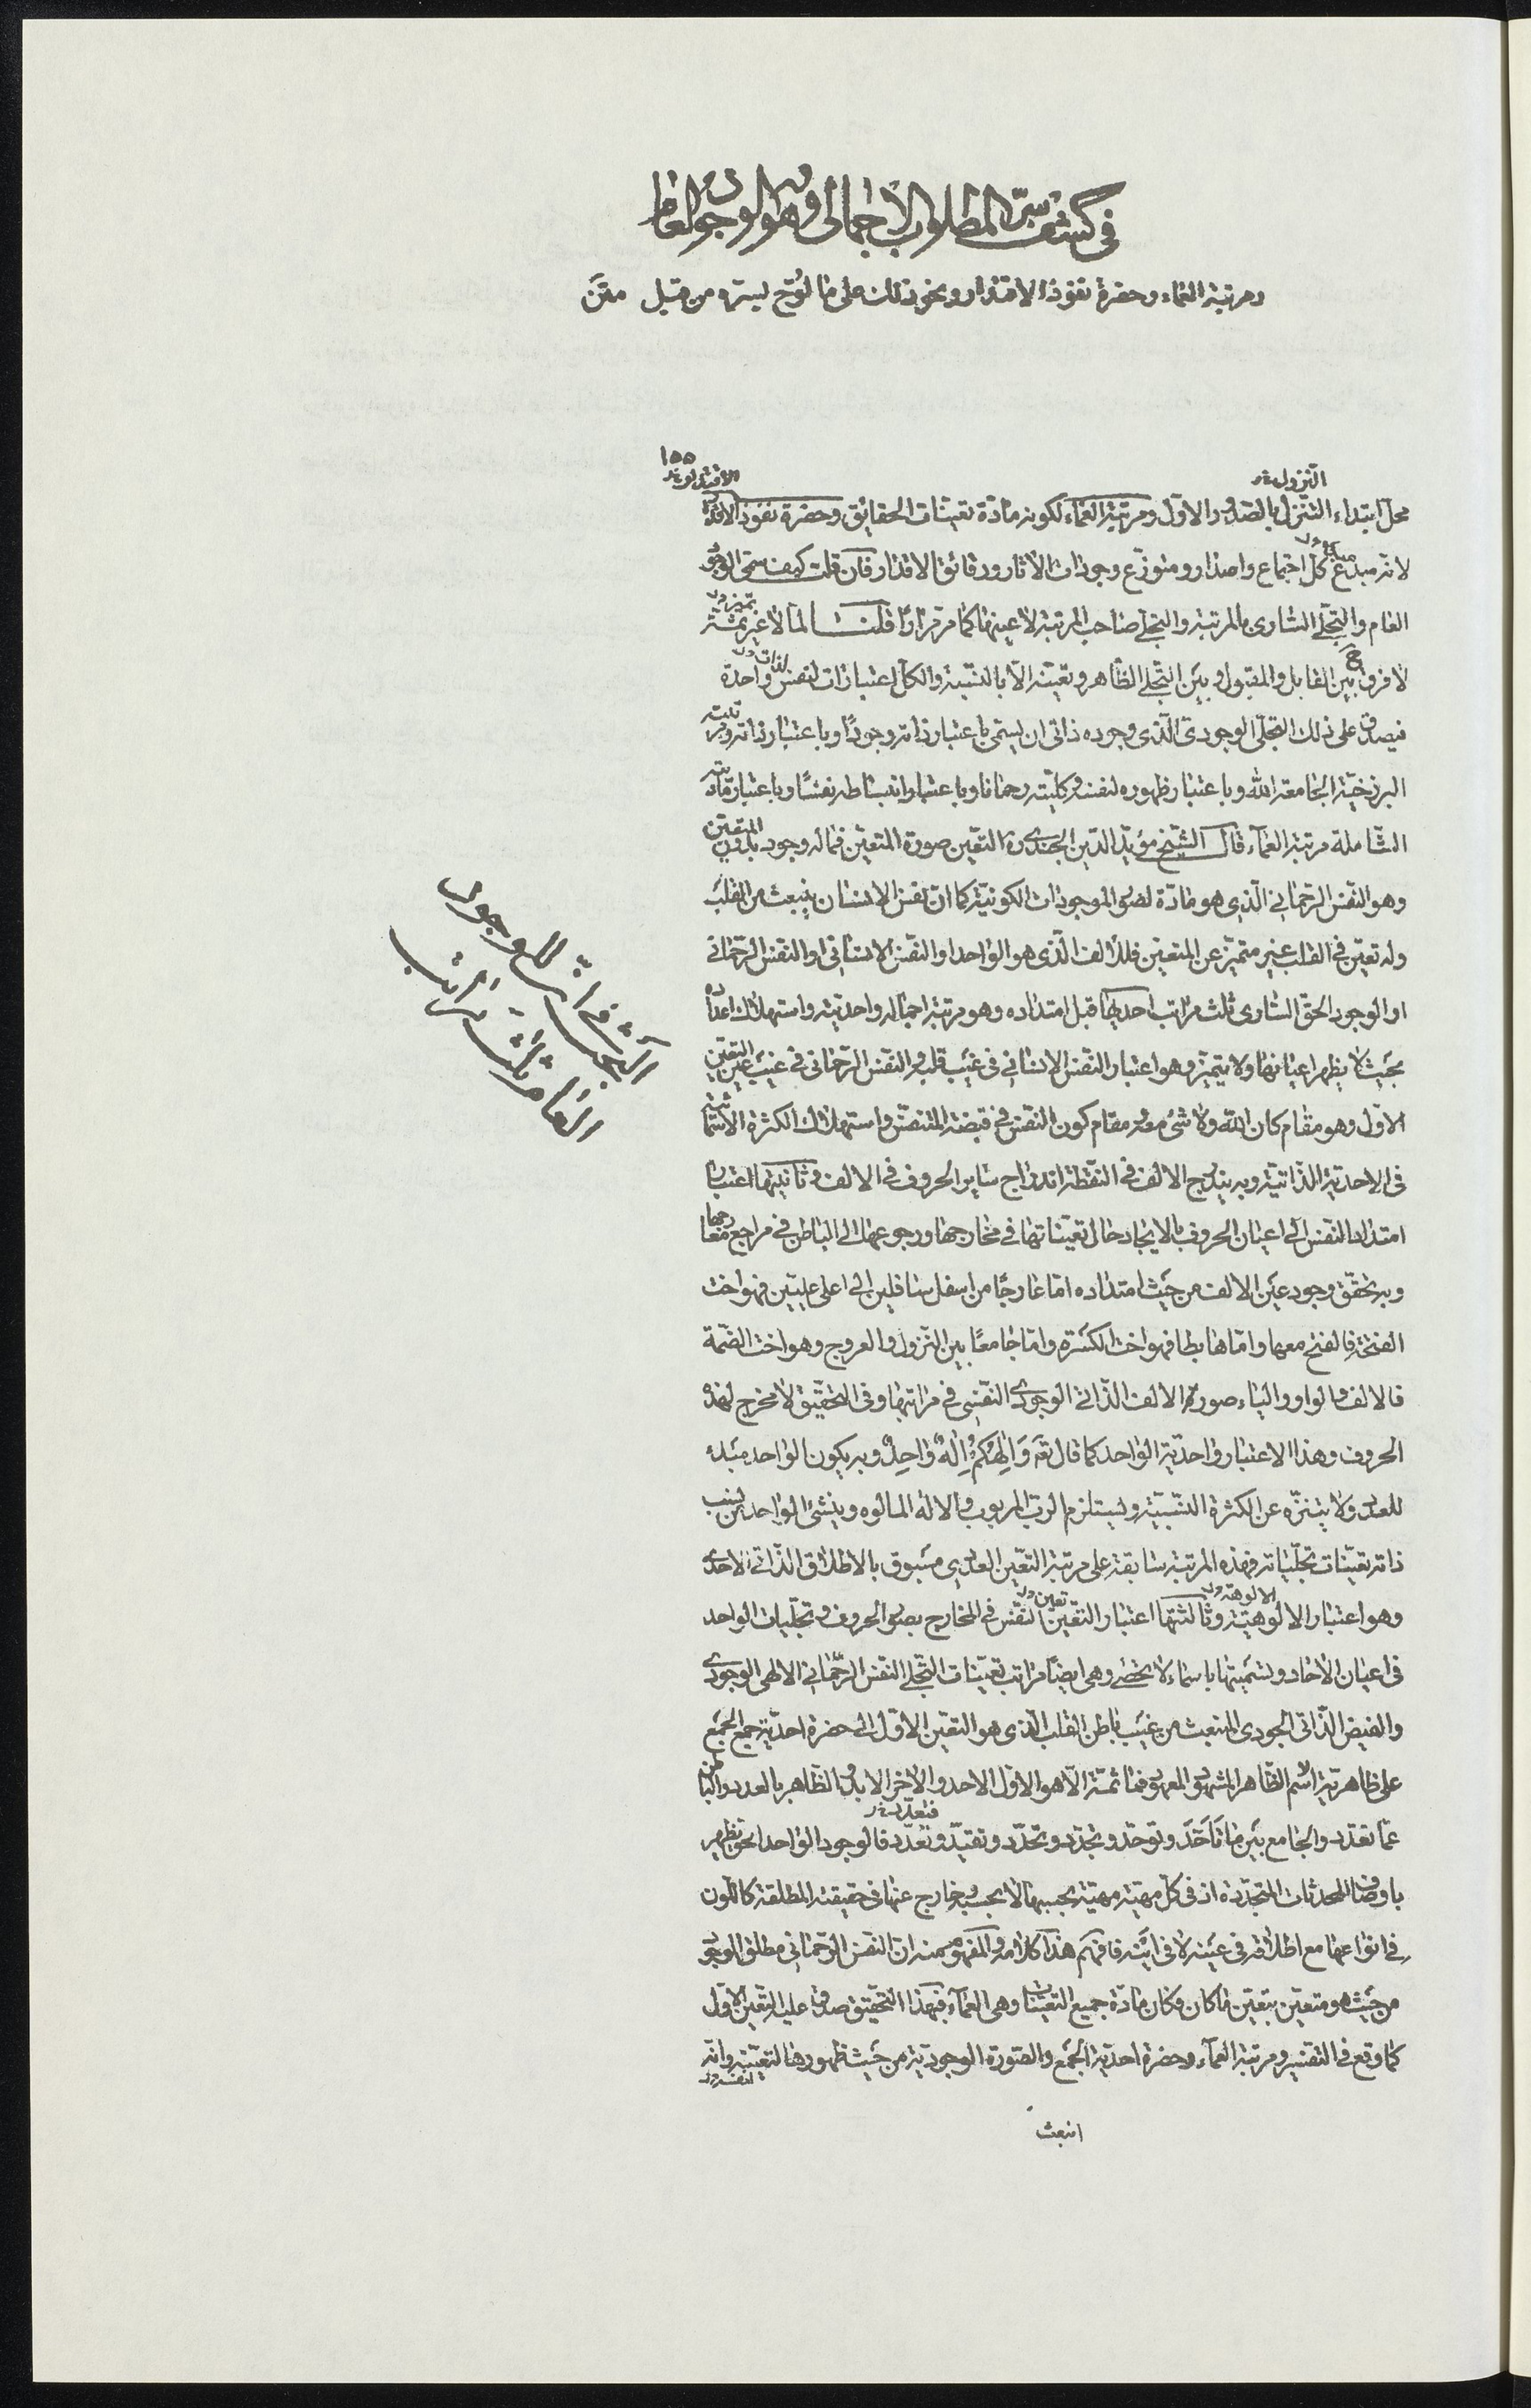 في كشف سرّ المطلوب الاجمالي وهو الوجود العام
ومرتبة العماء وحضرة نفوذ الاقتدار ونحو ذلك على ما لوّح لسرّه من قبل متن
١٥٥
التنزول
الاقتدار
محل ابتداء التنزل بالصدور الاول ومرتبة العماء لكونه مادّة تعيّنات الحقايق وحضرة نفوذ الاقتدار
لانه مبدء كل اجتماع واصدار ومتوزّع وجودات الاثار ورقائق الاقدار فان قلت كيف سمّى الوجود
العام والتجلّى السّارى بالمرتبة والتجلى صاحب المرتبة لا عينها كما مر مرارا قلنا لما لا غير ثمّة
لا فرق بين القابل والمقبول وبين التجلى الظاهر وتعيّنه الا بالنسبة والكل اعتبارات لنفس واحدة
فيصدق على ذلك التجلّى الوجودى الّذى وجوده ذاتى ان يسمى باعتبار ذاته وجودًا وباعتبار ذاته ومرتبته
البرزخيّة الجامعة الله وباعتبار ظهوره لنفسه وكليّته رحمانا وباعتبار انبساطه نفسًا وباعتبار مادّيته
الشّاملة مرتبة العمآء قال الشيخ مؤيّد الدّين الجندى ره التعيّن صورة المتعيّن فماله وجود بدون المتعيّن
وهو النّفس الرّحماني الّذي هو مادّة لصور الموجودات الكونيّة كما انّ نفس الانسان ينبعث من القلب
وله تعيّن في القلب غير متميّز عن المتعيّن فللالف الّذى هو الواحد او النّفس الانسانى او النّفس الرّحمانى
او الوجود الحقّ السّارى ثلث مراتب احديها قبل امتداده وهو مرتبة اجماله واحديّته واستهلاك اعداده
بحيث لا يظهر اعيانها ولا يتميّز وهو اعتبار النّفس الانسانى في غيب قلبه والنّفس الرّحمانى في غيب عين التعيّن
الاوّل وهو مقام كان الله ولا شئ معه ومقام كون النّفس في قبضة المتنفّس واستهلاك الكثرة الاسمائيّة
فى الاحديّة الذّاتيّة وبه يندرج الالف في النّقطة اندراج ساير الحروف في الالف وثانيتها اعتبار
امتداد النّفس الى اعيان الحروف بالايجاد حال تعيّناتها في مخارجها ورجوعها الى الباطن في مراجع معارجها
وبه تحقّق وجود عين الالف من حيث امتداده امّا عارجًا من اسفل سافلين الى اعلى عليّين فهو اخت
الفتحة فالفتح معها وامّا هابطا فهو اخت الكسرة وامّا جامعًا بين النّزول والعروج وهو اخت الضّمّة
فالالف والواو والياء صورة الالف الذّاتى الوجودى النّفسى في مراتبها وفى التحقيق لا مخرج لهذه
الحروف وهذا الاعتبار واحديّة الواحد كما قال تعٓ وَاِلٰهُكُمْ اِلٰهٌ وَاحِدٌ وبه يكون الواحد مبدء
للعدد ولا يتنزّه عن الكثرة النسبيّة ويستلزم الرب المربوب والاله المألوه وينشئ الواحد من نسب
ذاته تعيّنات تجلّياته فهذه المرتبة سابقة على مرتبة التّعيّن العددي مسبوق بالاطلاق الذّاتى الاحدى
وهو اعتبار الالوهيّة وثالثتها اعتبار التعيّن النّفس في المخارج بصور الحروف وتجلّيات الواحد
فى اعيان الاحاد وتسميتها باسماء لا تحصى وهى ايضًا مراتب تعيّنات التجلى النّفس الرّحمانى الالهى الوجودى
والفيض الذّاتى الجودى المنبعث من غيب باطن القلب الّذى هو التعيّن الاوّل الى حضرة احديّة جمع الجمع
على ظاهريّة اسم الظّاهر المشهود المعهود فما ثمّة الّا هو الاوّل الاحد والآخر الابد والظّاهر بالعدد والباطن
عمّا تعدّد والجامع بين ما تأحّد وتوحّد وتجدّد وتحدّد وتقيّد وتعدّد فالوجود الواحد الحق يظهر
باوصاف المحدثات المتجدّدة اذ في كلّ مهيّة مهيّة بحسبها لا بحسب خارج عنها في حقيقته المطلقة كاللّون
في انواعها مع اطلاقه فى عينه لا في اينيّته فافهم هذا كلامه والمفهوم منه انّ النّفس الرّحمانى مطلق الوجود
من حيث هو متعيّن بتعيّن ما كان وكان مادّة جميع التعيّنات وهى العمآء فبهذا التّحقيق صدق عليه التّعين الاوّل
كما وقع في التفسير ومرتبة العمآء وحضرة احديّة الجمع والصّورة الوجوديّة من حيث ظهورها لتعيّنه وانّه
انبعث
الشرف انّ الوجود
العام ثلث مراتب